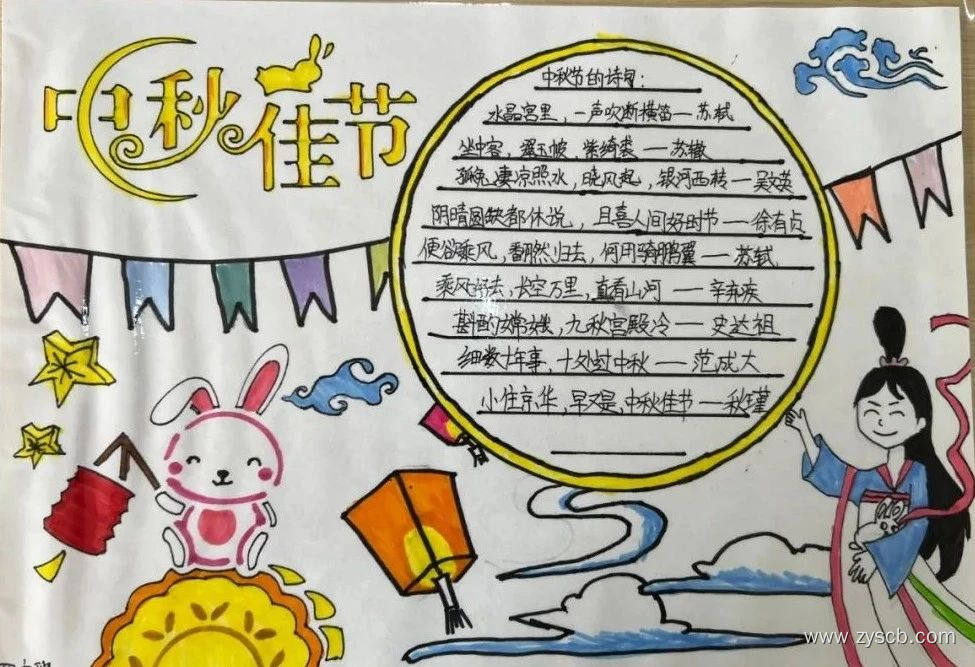 中秋佳节
中秋节的诗句：
水晶宫里，一声吹断横笛—苏轼
坐中客，翠玉帔，紫绮裘—苏辙
孤兔凄凉照水，晓风起，银河西转—吴文英
阴晴圆缺都休说，且喜人间好时节—徐有贞
便欲乘风，翻然归去，何用骑鹏翼—苏轼
乘风好去，长空万里，直看山河—辛弃疾
斟酌嫦娥，九秋宫殿冷—史达祖
细数十年事，十处过中秋—范成大
小住京华，早又是，中秋佳节—秋瑾
www.zyscb.com